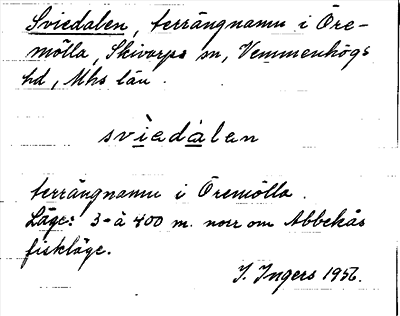 Sviedalen, terrängnamn i Öre-
mölla, Skivarps sn, Vemmenhögs
hd, Mhs län.
svìedàlen
terrängnamn i Öremölla.
Läge: 3-à 400 m. norr om Abbekås
fiskläge.
I. Ingers 1956.